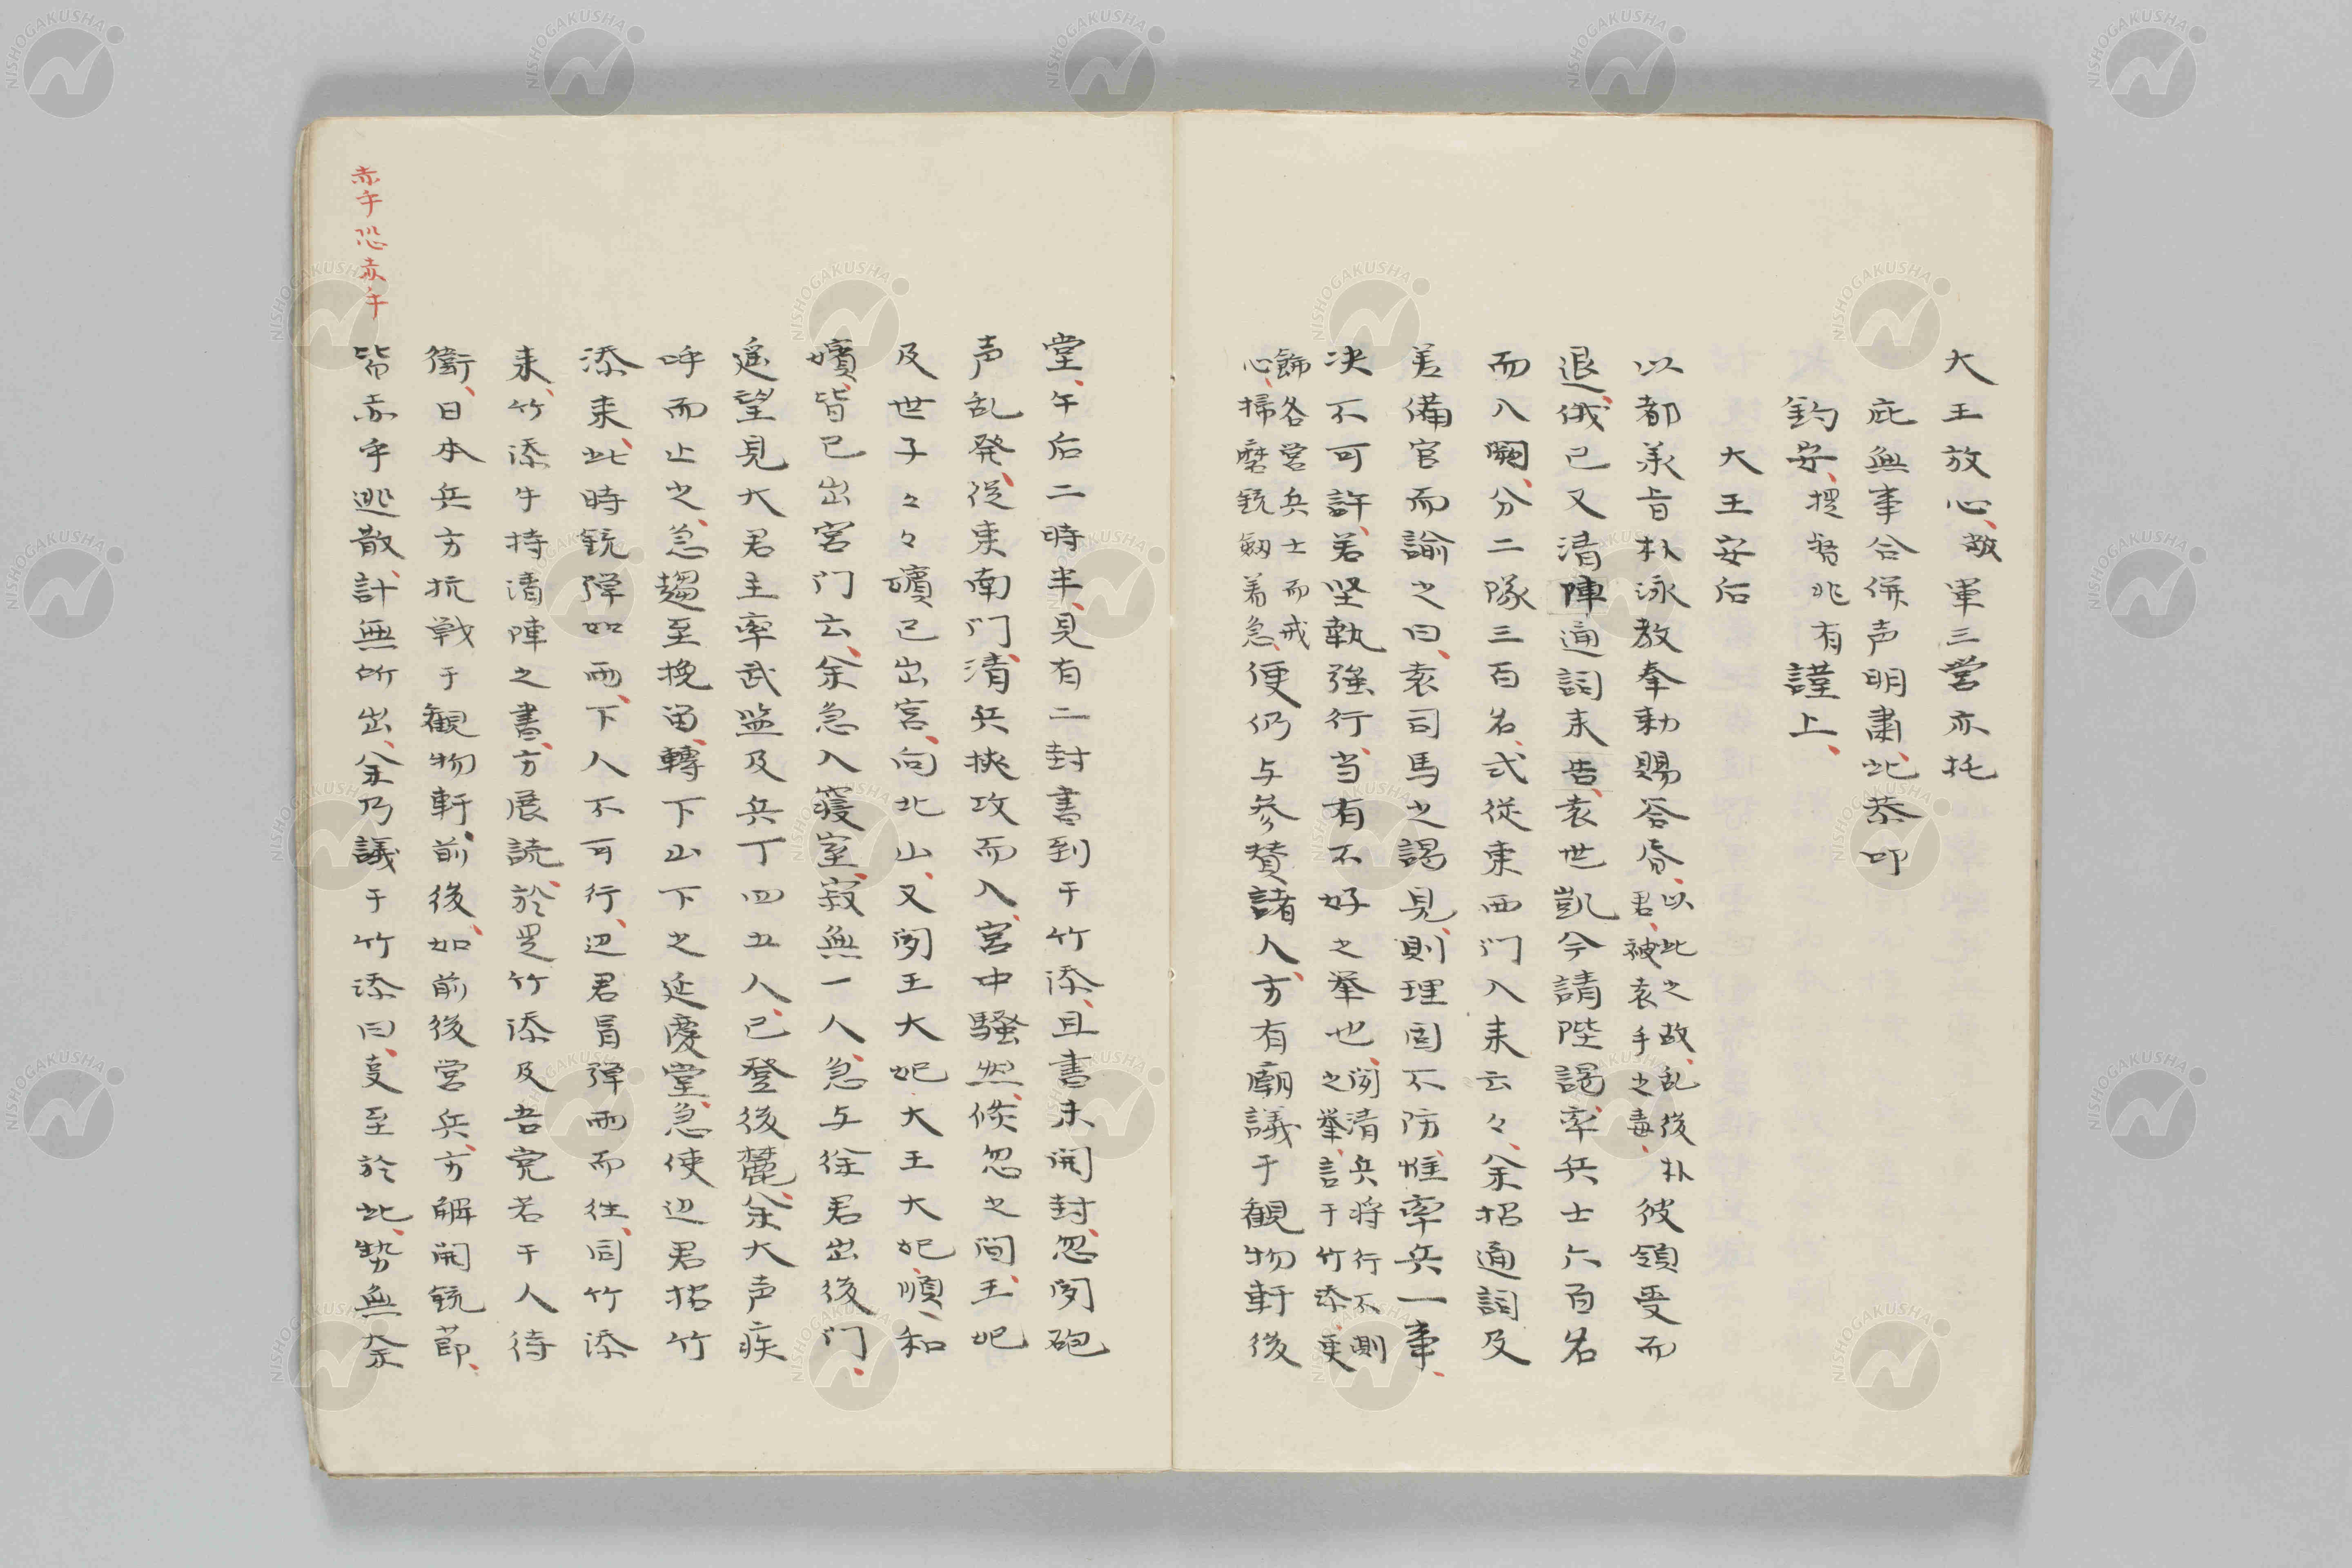 大王放心、敬軍三営亦托
庇無事合併声明肅此、恭叩
鈞安、提督兆有謹上、
大王安后
以都承旨朴泳教奉勅賜答脊、以此之故、乱後朴君、被袁手之毒、彼領受而
退、俄已又清陣通詞来告、袁世凱今請陛謁、率兵士六百名
而入闕、分二隊三百名、弍従東西门入来云々、余招通詞及
差備官而諭之曰、袁司馬之謁見、則理固不防、惟率兵一事、
决不可許、若坚執強行、当有不好之挙也、闵清兵将行不測之挙、言于竹添、更
飾各営兵士而戒心、掃磨銃剱着急、便仍与参賛諸人、方有廟議于観物軒後
堂、午后二時半、見有二封書到于竹添、且書未開封、忽闵砲
声乱発、従東南门、清兵挾攻而入、宮中騒然、倏忽之间、王妃
及世子々々嬪已出宮、向北山、又闵王大妃大王大妃、順、和
嬪、皆已出宮门云、余急入寝室、寂無一人、急与徐君出後门、
遥望見大君主率武监及兵丁四五人、已登後麓、余大声疾
呼而止之、急趨至挽留、轉下山下之延慶堂、急使辺君招竹
添来、此時銃弾如雨、下人不可行、辺君冒弾雨而往、同竹添
来、竹添手持清陣之書、方展読、於是竹添及吾党若干人待
衛、日本兵方抗戦于観物軒前後、如前後営兵、方解開銃莭、
皆赤手逃散、計無所出、余乃議于竹添曰、事至於此、勢無奈
赤手恐赤手